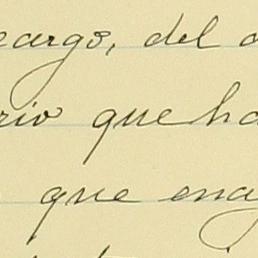 cargo, del
rio que ha
que enaj